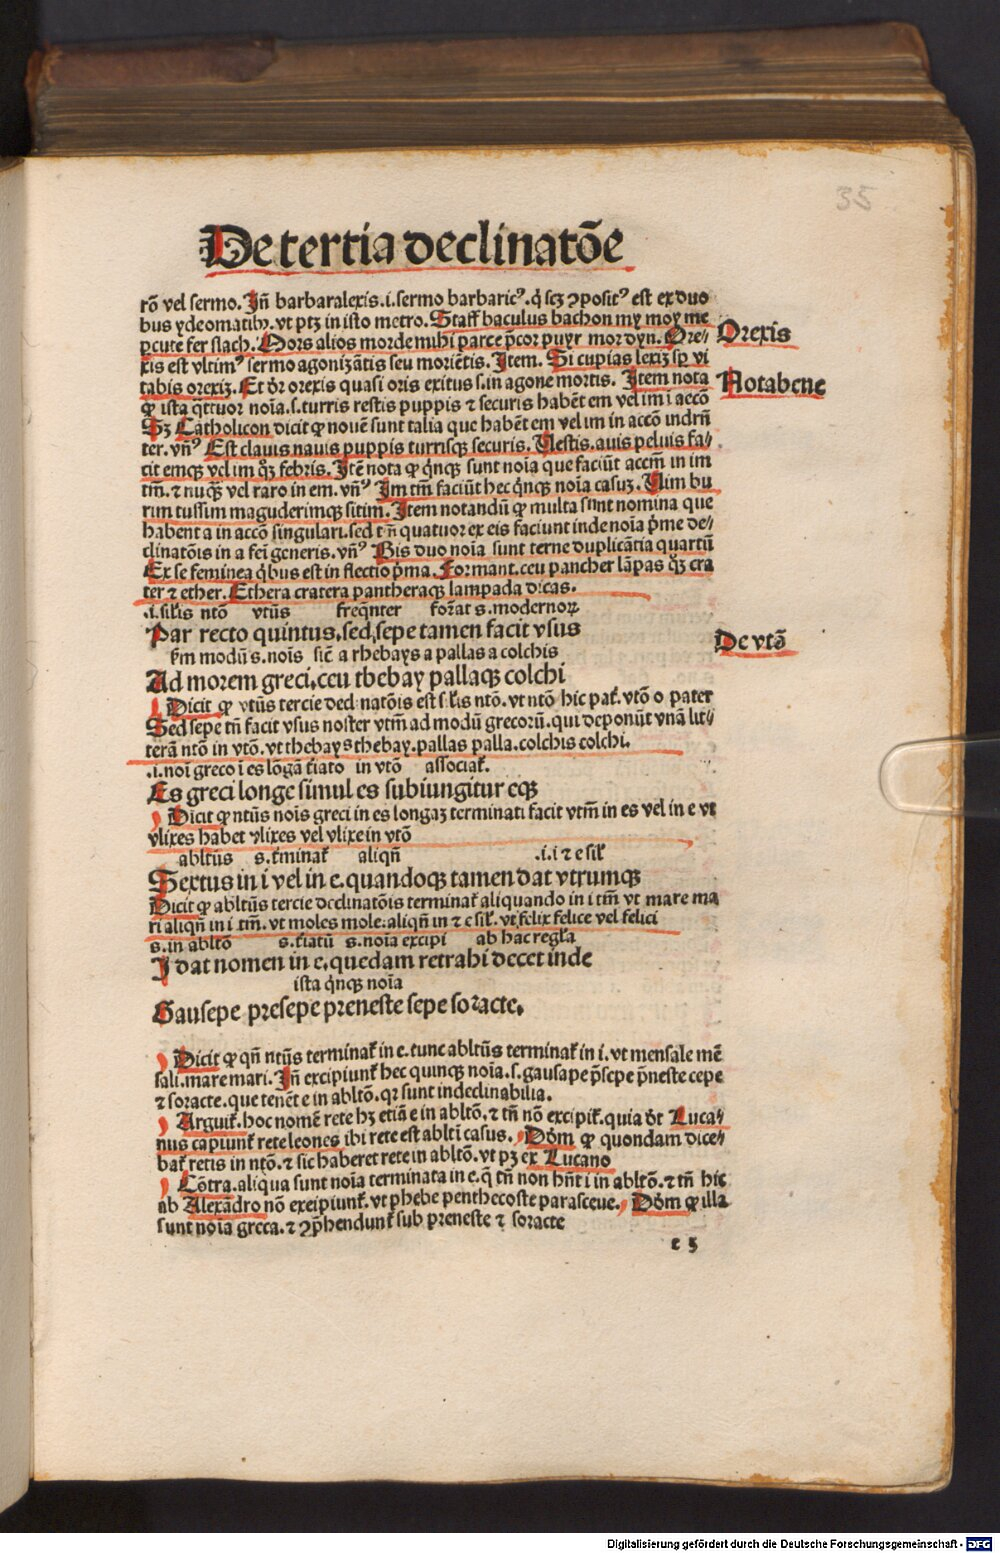 35
De tertia declinatõe
rõ vel sermo. Iñ barbaralexis .i. sermo barbaricꝰ. q̇ scꝫ ꝯpositꝰ est ex duo
bus ydeomatibꝫ. vt ptꝫ in isto metro. Staff baculus bachon my moy me
ꝑcute fer slach. Mors alios morde mihi parce p̄cor puyr mordyn. Ore/
Orexis
xis est vltimꝰ sermo agonizãtis seu moriẽtis. Item. Si cupias lexiꝫ sꝑ vi
tabis orexiꝫ. Et dr̃ orexis quasi oris exitus s. in agone mortis. Item nota
Notabene
ꝙ ista q̃ttuor noĩa .s. turris restis puppis ⁊ securis habẽt em vel im i accõ
Sꝫ Catholicon dicit ꝙ nouẽ sunt talia que habẽt em vel im in accõ indrñ
ter. vñꝰ Est clauis nauis puppis turrisqꝫ securis. Uestis. auis peluis fa/
cit emqꝫ vel im q̊ꝫ febris. Itẽ nota ꝙ q̇nqꝫ sunt noĩa que faciũt accm̃ in im
tm̃. ⁊ nuq̃ꝫ vel raro in em. vñꝰ Im tm̃ faciũt hec q̇nqꝫ noĩa casuꝫ. Uim bu
rim tussim maguderimqꝫ sitim. Item notandũ ꝙ multa sunt nomina que
habent a in accõ singulari. sed tñ quatuor ex eis faciunt inde noĩa p̃me de/
clinatõis in a fei generis. vñꝰ Bis duo noĩa sunt terne duplicãtia quartũ
Ex se feminea q̇bus est in flectio p̃ma. Formant. ceu pancher lãpas q̊ꝫ cra
ter ⁊ ether. Ethera cratera pantheraqꝫ lampada dicas.
.i. sil̃is ntõ vtũs freqñter for̃at s. modernoꝝ
Par recto quintus. sed sepe tamen facit vsus
De vtõ
km̃ modũ s. noĩs sic̃ a rhebays a pallas a colchis
Ad morem greci. ceu thebay pallaqꝫ colchi
Dicit ꝙ vtũs tercie declinatõis est sil̃is ntõ. vt ntõ hic pat̃. vtõ o pater
Sed sepe tñ facit vsus noster vtm̃ ad modũ grecorũ. qui deponũt vnã lit/
terã ntõ in vtõ. vt thebays thebay. pallas palla. colchis colchi.
.i. noĩ greco ĩ es lõga t̃iato in vtõ associat̃.
Es greci longe simul es subiungitur eqꝫ
Dicit ꝙ ntũs noĩs greci in es longaꝫ terminati facit vtm̃ in es vel in e vt
vlixes habet vlixes vel vlixe in vtõ
abltũs s. t̃minat̃ aliqñ .i. i ⁊ e sil̃
Sextus in i vel in e. quandoqꝫ tamen dat vtrumqꝫ
Dicit ꝙ abltũs tercie declinatõis terminat̃ aliquando in i tm̃ vt mare ma
ri aliqñ in i tm̃. vt moles mole. aliqñ in ⁊ e sil̃. vt felix felice vel felici
s. in abltõ s. t̃iatũ s. noĩa excipi ab hac regl̃a
I dat nomen in e. quedam retrahi decet inde
ista q̇nqꝫ noĩa
Gausepe presepe preneste sepe soracte.
Dicit ꝙ qñ ntũs terminat̃ in e. tunc abltũs terminat̃ in i. vt mensale mẽ
sali. mare mari. Iñ excipiunt̃ hec quinqꝫ noĩa .s. gausape p̃sepe p̃neste cepe
⁊ soracte. que tenẽt e in abltõ. qꝛ sunt indeclinabilia.
Arguit̃. hoc nomẽ rete hꝫ etiã e in abltõ. ⁊ tñ nõ excipit̃. quia dr̃t Luca/
nus capiunt̃ rete leones ibi rete est ablti casus. Dõm ꝙ quondam dice/
bat̃ retis in ntõ. ⁊ sic haberet rete in abltõ. vt pꝫ ex Lucano
Cõtra. aliqua sunt noĩa terminata in e. q̃ tñ non hñt i in abltõ. ⁊ tñ hic
ab Alexãdro nõ exeipiunt̃. vt phebe penthecoste parasceue. Dõm ꝙ illa
sunt noĩa greca. ⁊ ꝯp̃hendunt̃ sub preneste ⁊ soracte
e 5
Digitalisierung gefördert durch die Deutsche Forschungsgemeinschaft - DFG